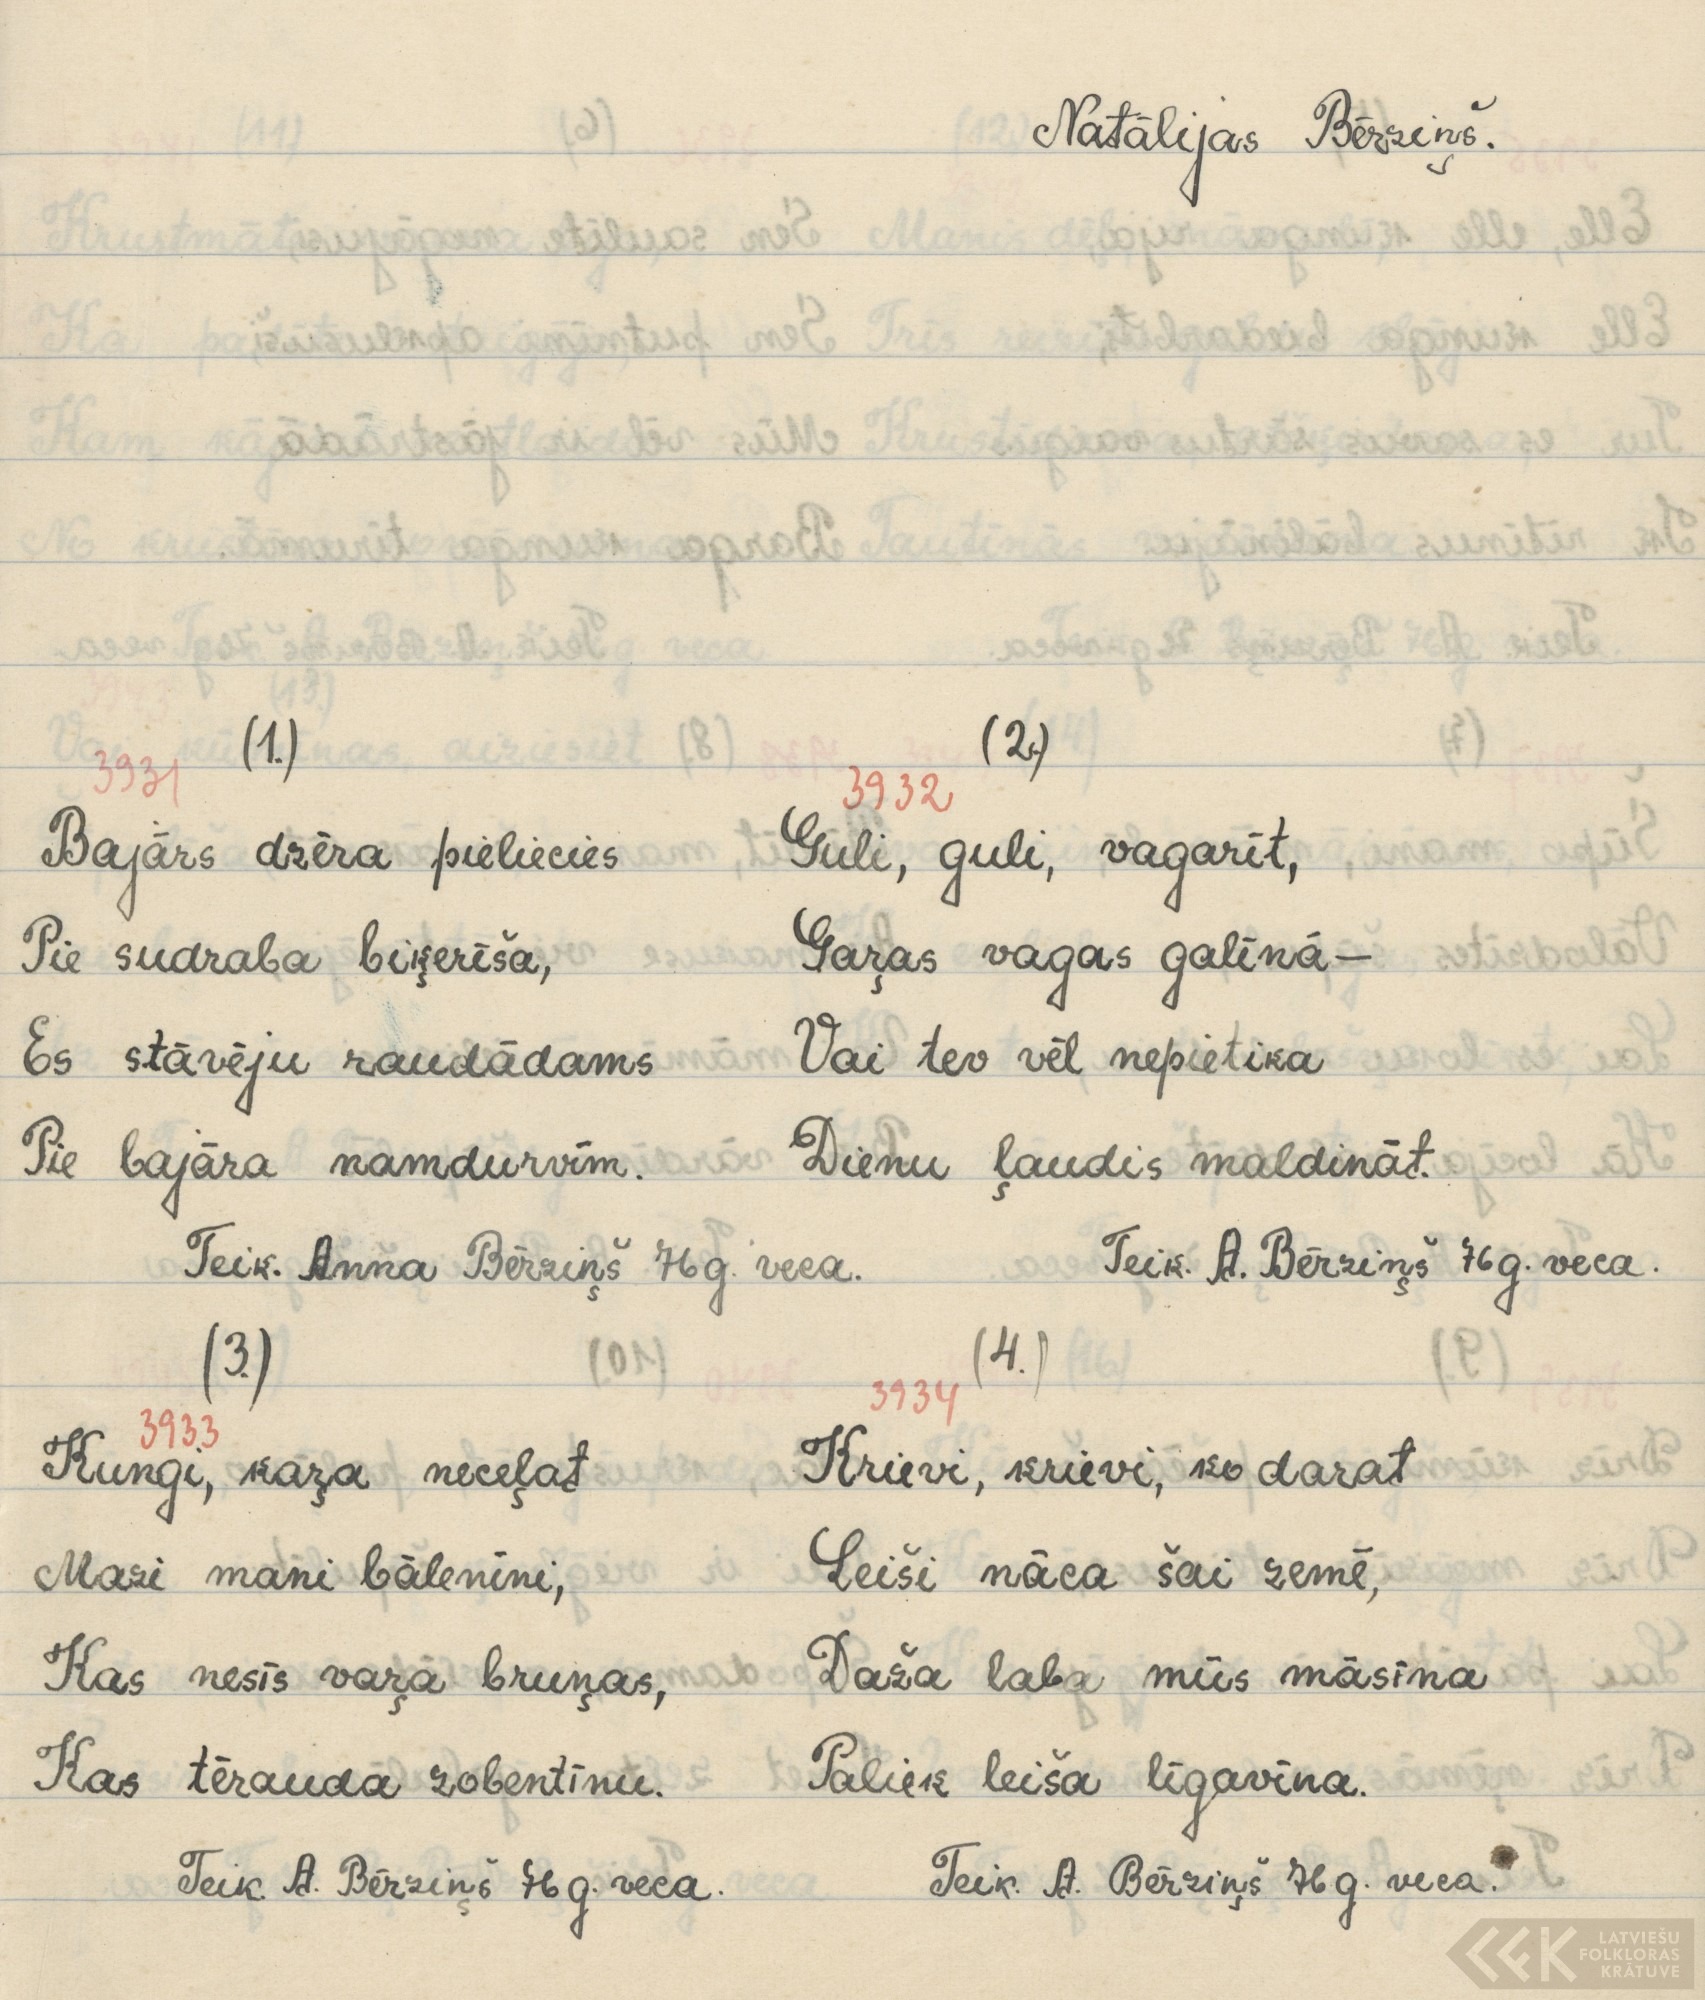 Natālijas Bērziņš.
(1.)
3931
Bajārs dzēra pieliecies
Pie sudraba biķerīša,
Es stāvēju raudādams
Pie bajāra namdurvīm.
Teik. Anna Bērziņš 76 g. veca.
(2.)
3932
Guli, guli, vagarīt,
Gaŗas vagas galīnā—
Vai tev vēl nepietika
Dienu ļaudis maldināt.
Teik. A. Bērziņš 76 g. veca.
(3.)
3933
Kungi, kaŗa neceļat
Mazi mani bālenīni,
Kas nesīs vaŗa bruņas,
Kas tērauda zobentīnu.
Teik. A. Bērziņš 76 g. veca.
(4.)
3934
Krievi, krievi, ko darat
Leiši nāca šai zemē,
Daža laba mūs māsīna
Paliek leiša līgavīna.
Teik. A. Bērziņš 76 g. veca.
LATVIEŠU
FOLKLORAS
KRĀTUVE